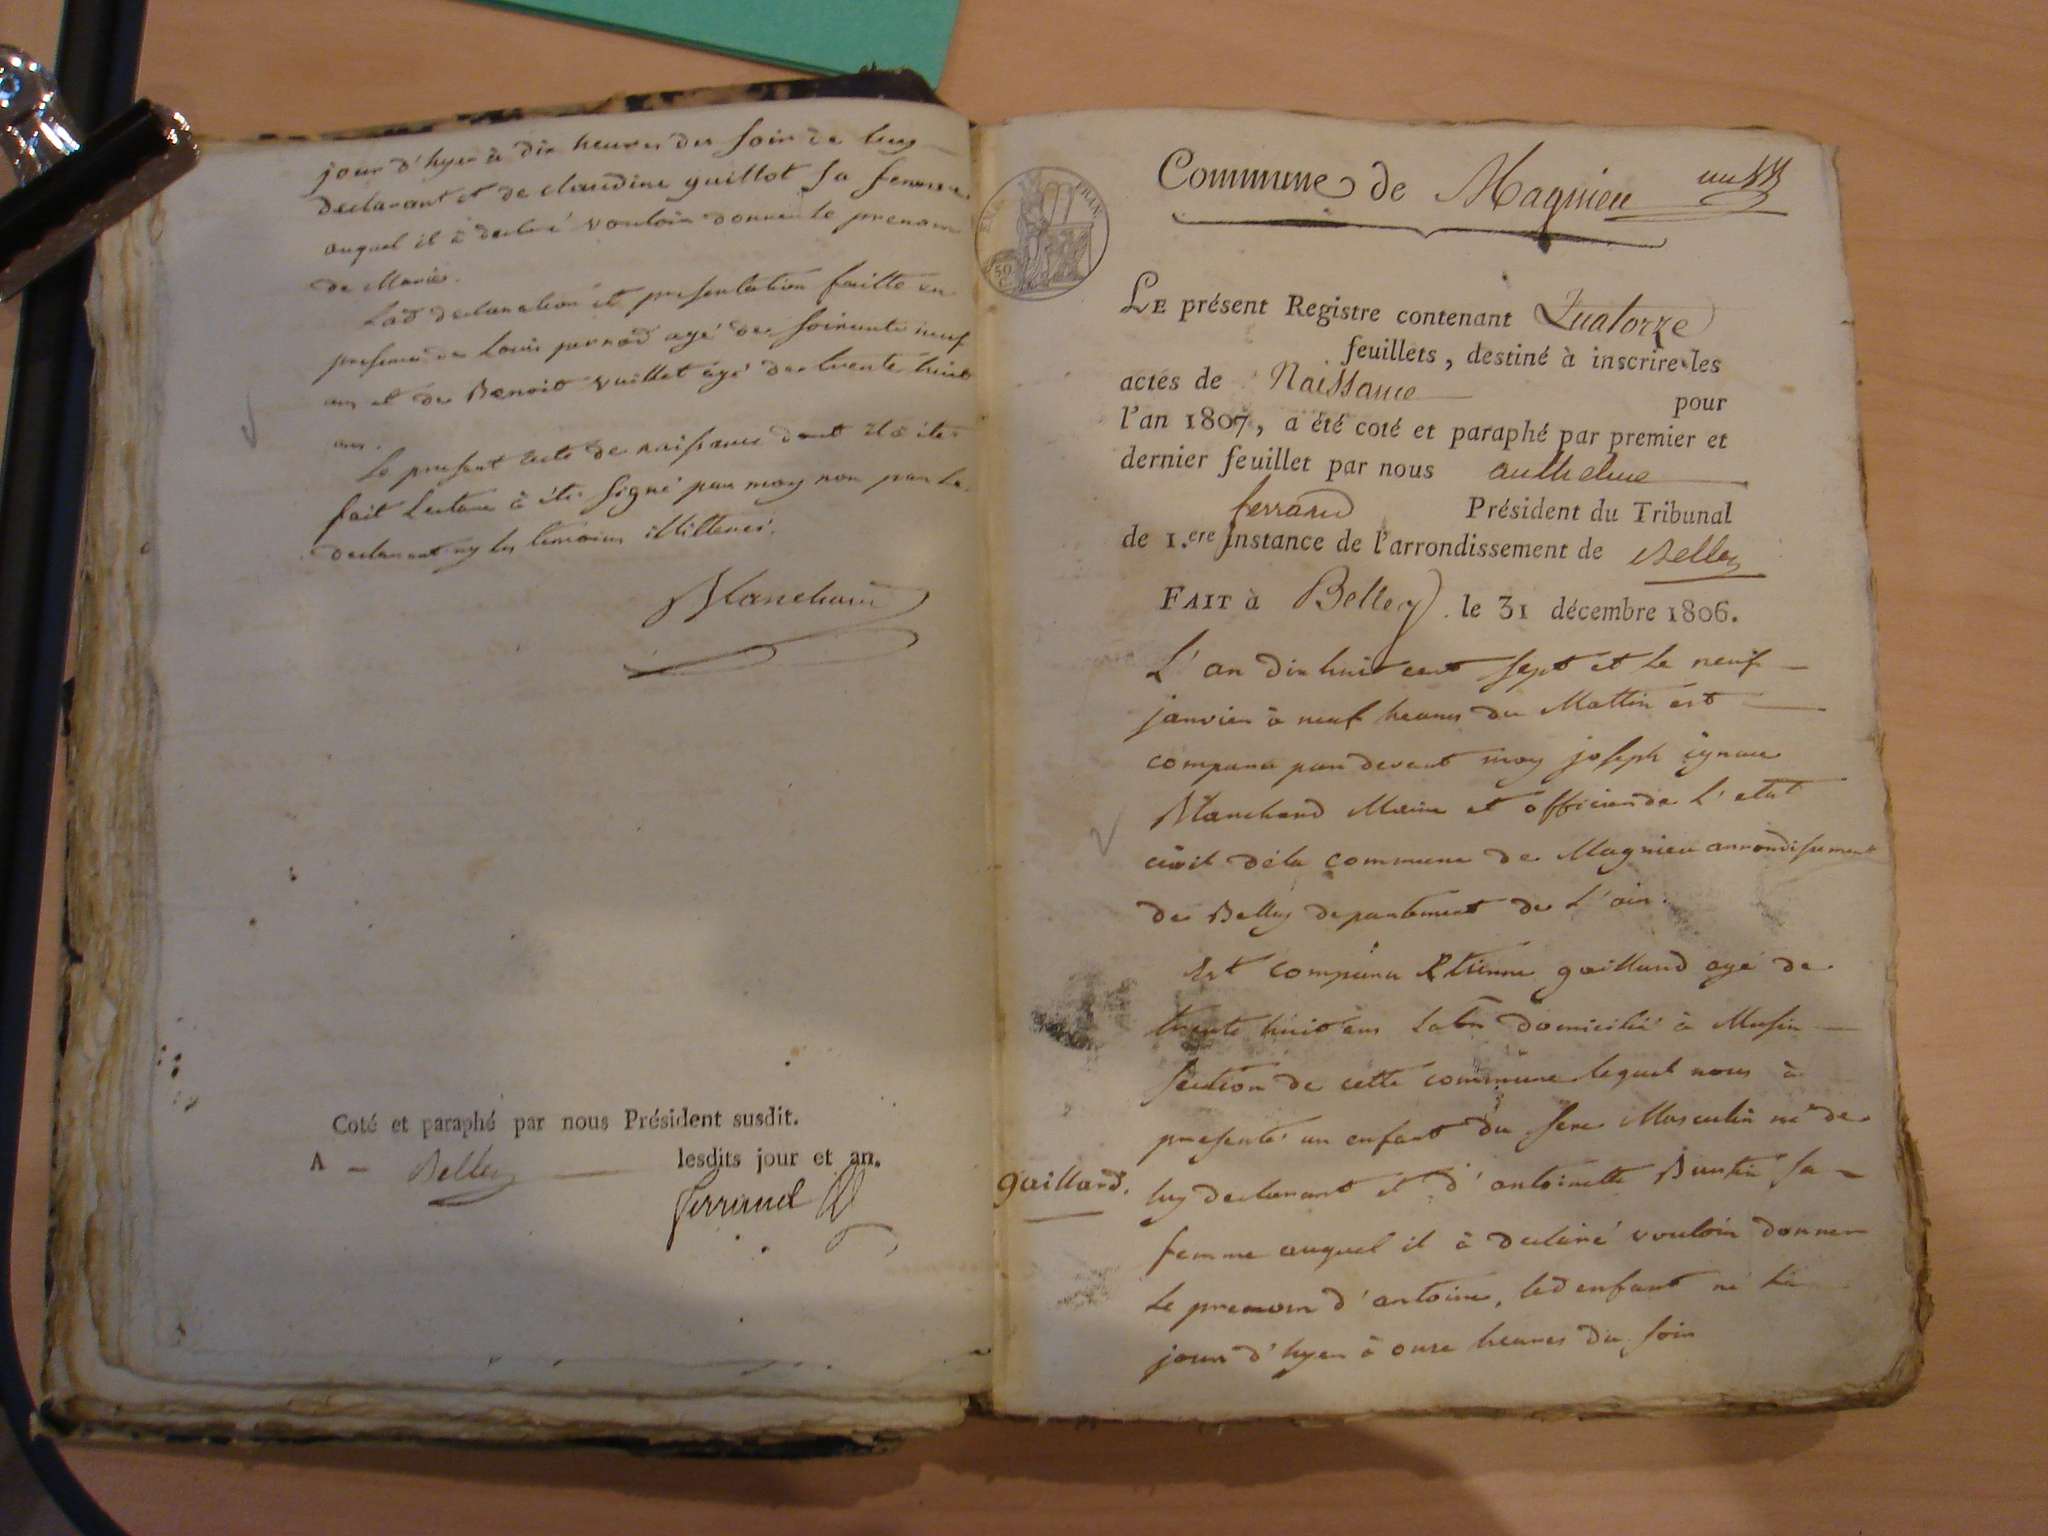 jour d'hyer à dix heures du soir de luy
declarant et de claudine guillot sa femme
auquel il à declaré vouloir donner le prenom
de Marie.
Lad declaration et presentation faitte en
presence de Louis pernod agé de soixante neuf
ans et de Benoit vuillet agé de trente huit
ans.
Le present acte de naissance dont il à été
fait Lecture à été signé par moy non par le
declarant ny les temoins illitterés.
Blanchard
Coté et paraphé par nous Président susdit.
A Belley lesdits jour et an.
ferrand
Commune de Magnieu un
EMP FRAN
50
LE présent Registre contenant Quatorze
feuillets, destiné à inscrire les
actes de Naissance pour
l'an 1807, a été coté et paraphé par premier et
dernier feuillet par nous anthelme
ferrand Président du Tribunal
de 1.ere Instance de l'arrondissement de Belley
FAIT à Belley le 31 décembre 1806.
L'an dix huit cent sept et le neuf
janvier à neuf heures du Mattin est
comparu par devant moy joseph ignace
Blanchard Maire et officier de L'etat
civil de la commune de Magnieu arrondissement
de Belley departement de L'ain.
Est comparu Etienne gaillard agé de
trente huit ans domicilié à Musin
section de cette commune lequel nous à
presenté un enfant du sexe Masculin né de
gaillard.
luy declarant et d'antoinette sa
femme auquel il à declaré vouloir donner
le prenom d'antoine, led enfant né le
jour d'hyer à onze heures du soir